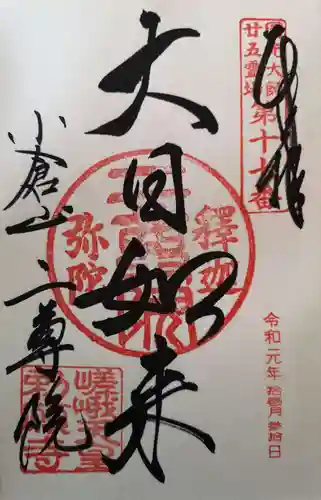 奉拝
圓光大師
廿五霊場
第十七番
大日如来
釋迦
弥陀
小倉山
二尊院
嵯峨天皇
勅願寺
令和元年 拾壹月 参拾日